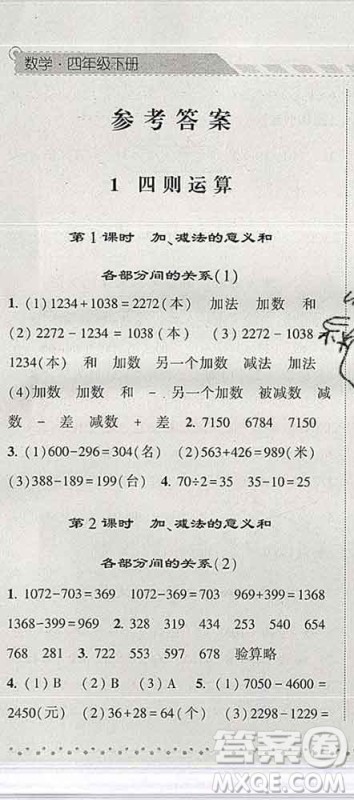 数学·四年级下册
参考答案
1 四则运算
第1课时 加、减法的意义和
各部分间的关系(1)
1. (1)1234+1038=2272(本) 加法 加数 和
(2)2272-1234=1038(本) (3)2272-1038=
1234(本) 和 加数 另一个加数 减法 加法
(4)加数 加数 和 - 另一个加数 被减数 减
数 - 差 减数 + 差 2. 7150 6784 7150
3. (1)600-296=304(名) (2)563+426=989(米)
(3)388-189=199(台) 4. 70÷2=35 35-10=25
第2课时 加、减法的意义和
各部分间的关系(2)
1. 1072-703=369 1072-369=703 969+399=1368
1368-399=969 2. 328 434 253 540 654
768 281 3. 722 553 597 678 验算略
4. (1)B (2)B (3)A 5. (1)7050-4600=
2450(元) (2)36+28=64(个) (3)2298-1229=
答案圈
MXQE.COM